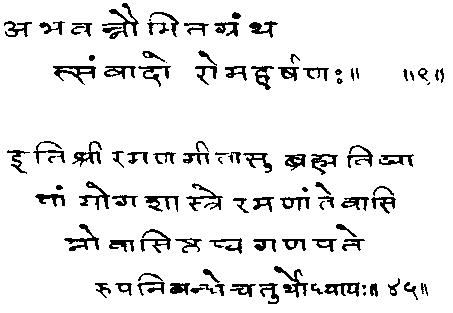 अभवन्नौमितग्रंथ
त्संवादो रोमहर्षणः॥ ॥९॥
इति श्री रमणगीतासु ब्रह्मविद्या
यां योगशास्त्रे रमणांतेवासि
नो वासिष्ठस्य गणपते
रुपनिबन्धे चतुर्थोध्यायः॥ ४५॥